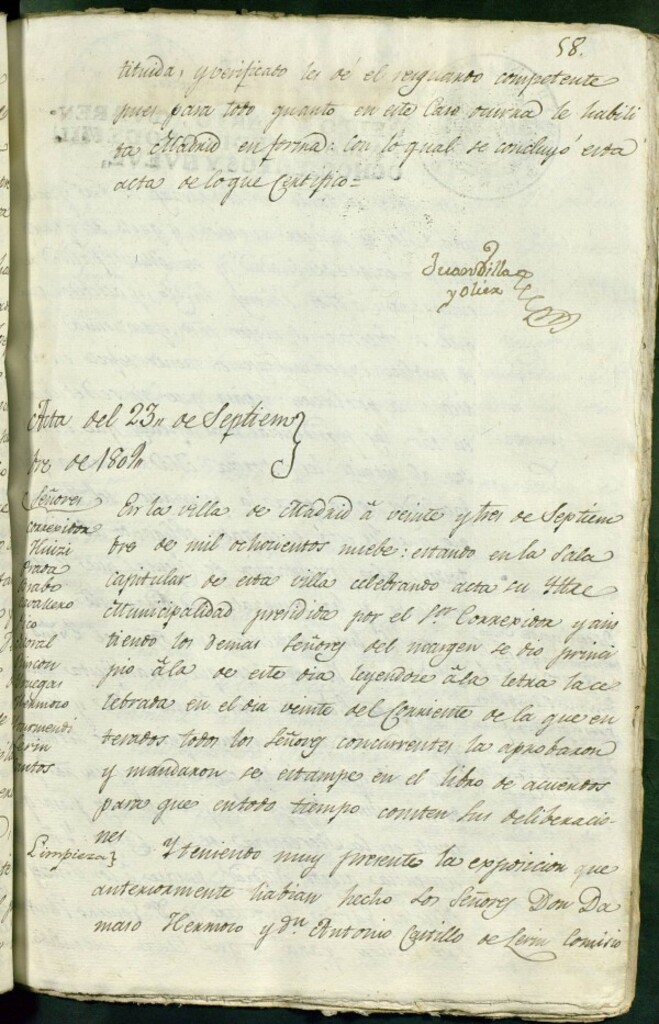 58.
tituida, y verificado les dé el resguardo competente
pues para todo quanto en este Caso ocurra le habili
ta Madrid en forma: con lo qual se concluyó esta
acta de lo que Certifico=
Juan Villa
y Olier
Acta del 23,, de Septiem
bre de 1809,,
Señores
Correxidor
En la villa de Madrid á veinte y tres de Septiem
bre de mil ochocientos nuebe: estando en la Sala
Prada
capitular de esta villa celebrando acta su Ytre
Cavallero
Municipalidad presidida por el Sor Correxidor y asis
tiendo los demas Señores del margen se dio princi
pio á la de este dia leyendose á la letra la ce
Hermoso
lebrada en el dia veinte del Corriente de la que en
terados todos los Señores concurrentes la aprobaron
y mandaron se estampe en el libro de acuerdos
para que entodo tiempo consten sus deliberacio-
nes
Limpieza}
Y teniendo muy presente la exposicion que
anteriormente habian hecho los Señores Don Da
maso Hermoso y dn Antonio Castillo de Lerin Comisio